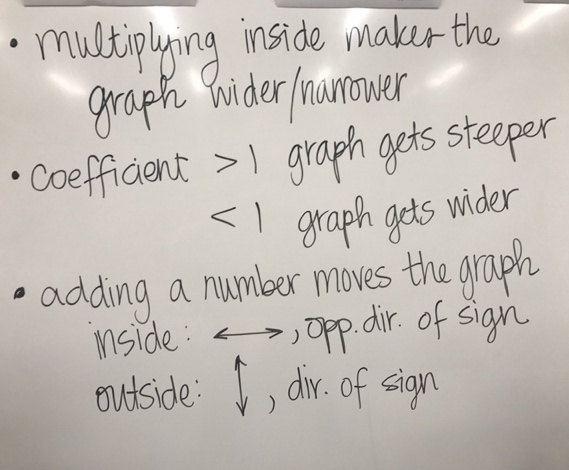 • multiplying inside makes the
graph wider/narrower
• coefficient > 1 graph gets steeper
< 1 graph gets wider
• adding a number moves the graph
inside: ↔, opp. dir. of sign
outside: ↕, dir. of sign